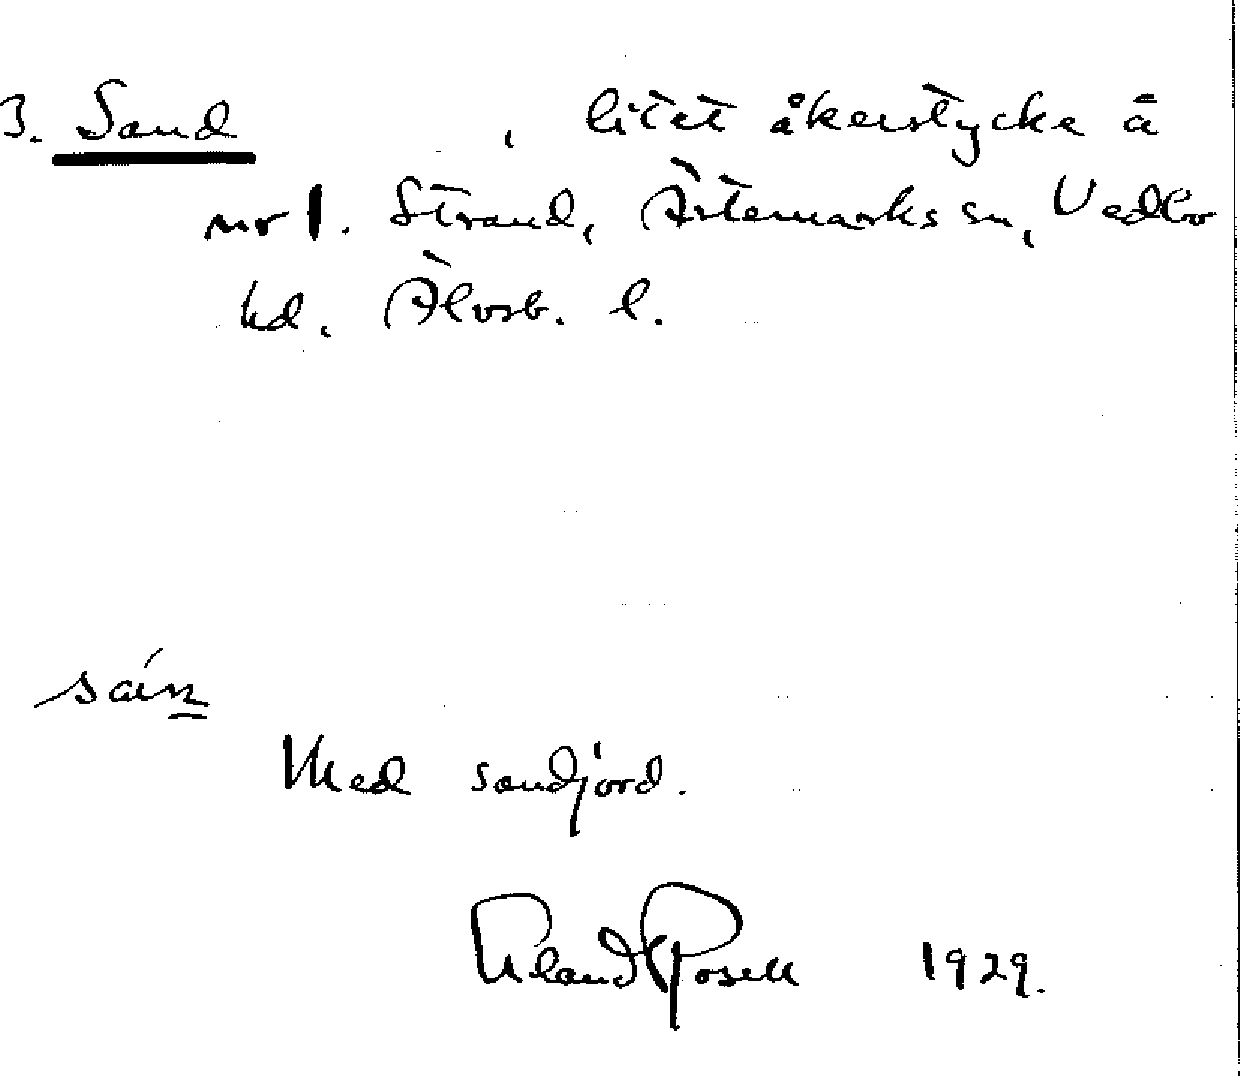 3. Sand , litet åkerstycke å
nr 1. Strand, Ärtemarks sn, Vedbo
hd. Älvsb. l.
sáṉ
Med sandjord.
Erland Rosell 1929.